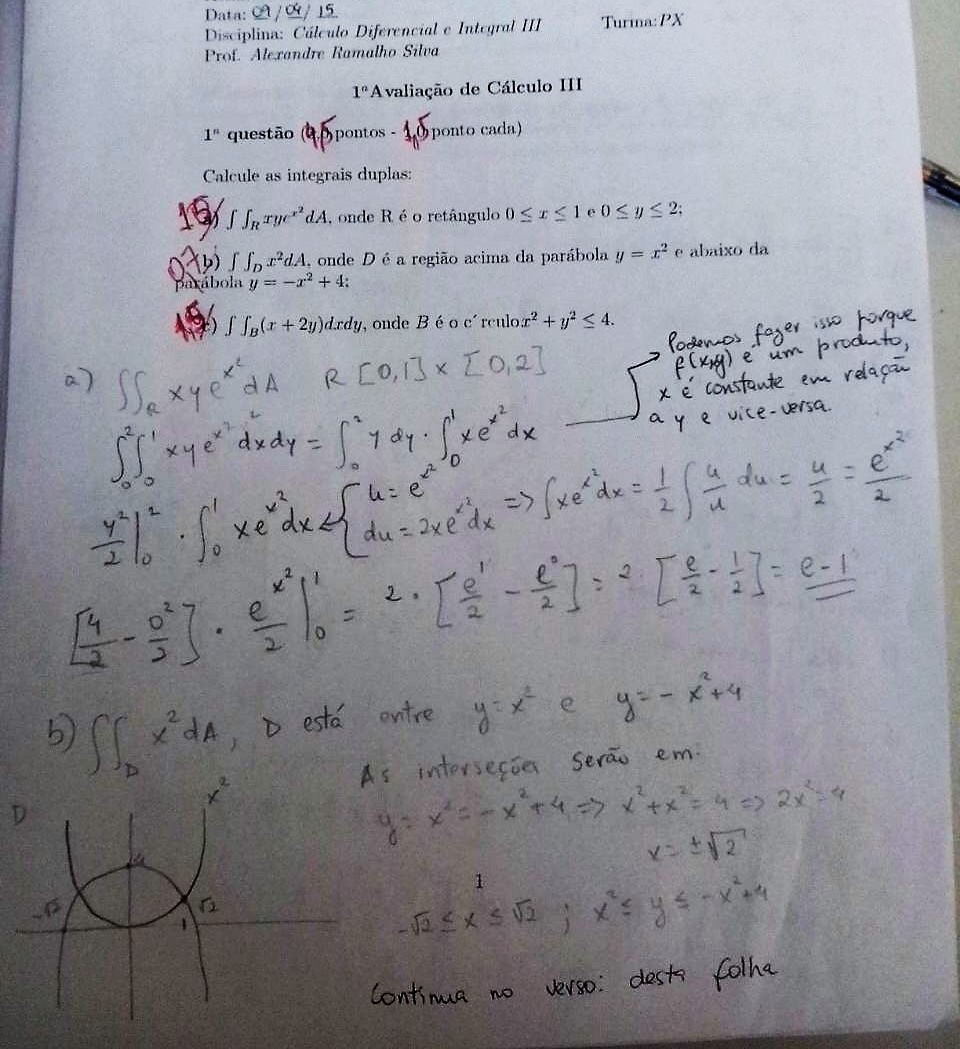 Data: 09/04/15
Disciplina: Cálculo Diferencial e Integral III Turma: PX
Prof. Alexandre Ramalho Silva
1ª Avaliação de Cálculo III
1ª questão (4,5 pontos - 1,5 ponto cada)
Calcule as integrais duplas:
1,5 a) ∫∫_R xye^{x²}dA, onde R é o retângulo 0 ≤ x ≤ 1 e 0 ≤ y ≤ 2;
0,7 b) ∫∫_D x²dA, onde D é a região acima da parábola y = x² e abaixo da
parábola y = −x² + 4;
1,5 c) ∫∫_B (x + 2y)dxdy, onde B é o c´ rculo x² + y² ≤ 4.
Podemos fazer isso porque
f(x,y) é um produto,
x é constante em relação
a y e vice-versa.
a) ∫∫_R xye^{x²}dA R [0,1] × [0,2]
∫_0^2 ∫_0^1 xye^{x²}dxdy = ∫_0^2 y dy · ∫_0^1 xe^{x²}dx
y²/2 |_0^2 · ∫_0^1 xe^{x²}dx { u = e^{x²} du = 2xe^{x²}dx => ∫xe^{x²}dx = 1/2 ∫ u/u du = u/2 = e^{x²}/2
[4/2 - 0²/2] · e^{x²}/2 |_0^1 = 2 · [e^1/2 - e^0/2] = 2 [e/2 - 1/2] = e-1
b) ∫∫_D x²dA, D está entre y=x² e y=-x²+4
As interseções serão em:
y= x² = -x²+4 => x²+x²=4 => 2x²=4
x= ±√2
D
x²
4
-√2
√2
1
-√2 ≤ x ≤ √2 ; x² ≤ y ≤ -x²+4
Continua no verso: desta folha